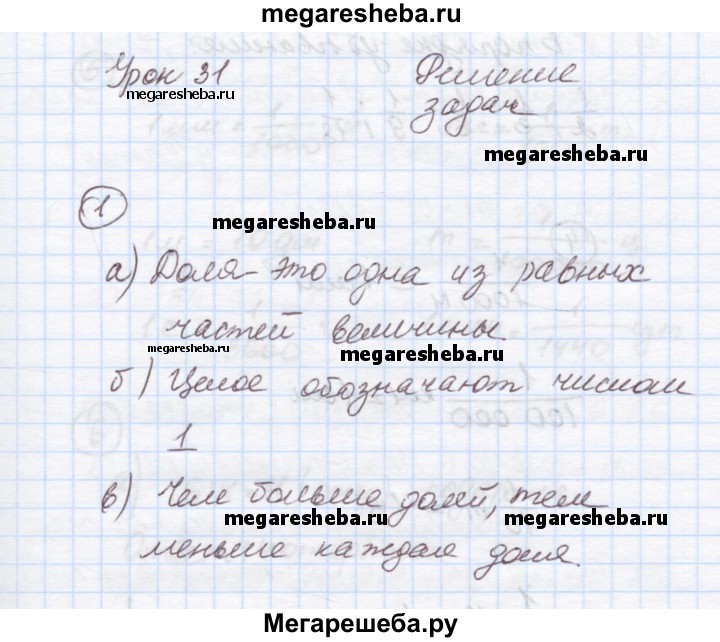 megaresheba.ru
Урок 31 Решение
megaresheba.ru задач
megaresheba.ru
1
megaresheba.ru
а) Доля - это одна из равных
частей величины
megaresheba.ru megaresheba.ru
б) Целое обозначают числом
1
в) Чем больше долей, тем
megaresheba.ru megaresheba.ru
меньше каждая доля.
Мегарешеба.ру